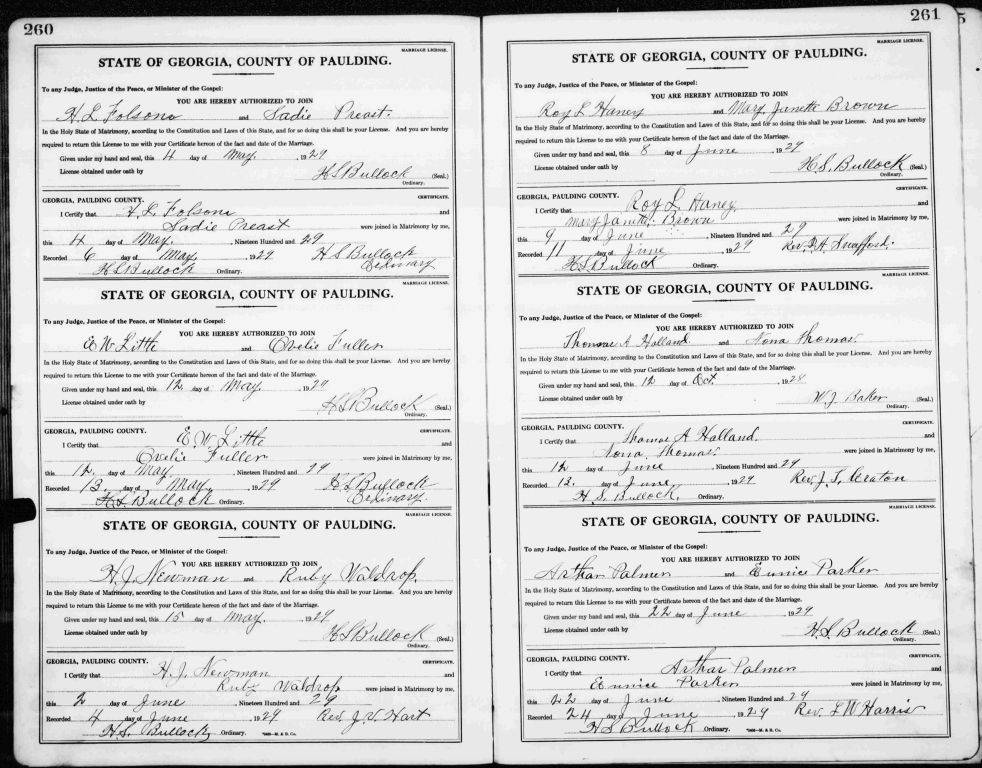 260
MARRIAGE LICENSE.
STATE OF GEORGIA, COUNTY OF PAULDING.
To any Judge, Justice of the Peace, or Minister of the Gospel:
YOU ARE HEREBY AUTHORIZED TO JOIN
H. L. Folsom and Sadie Preast.
In the Holy State of Matrimony, according to the Constitution and Laws of this State, and for so doing this shall be your License. And you are hereby
required to return this License to me with your Certificate hereon of the fact and date of the Marriage.
Given under my hand and seal, this 4 day of May. , 1929
License obtained under oath by H S Bullock (Seal.)
Ordinary.
CERTIFICATE.
GEORGIA, PAULDING COUNTY.
I Certify that H. L. Folsom and
Sadie Preast were joined in Matrimony by me,
this 4 day of May. , Nineteen Hundred and 29
Recorded 6 day of May, , 1929 H S Bullock
H S Bullock Ordinary. Ordinary
MARRIAGE LICENSE.
STATE OF GEORGIA, COUNTY OF PAULDING.
To any Judge, Justice of the Peace, or Minister of the Gospel:
YOU ARE HEREBY AUTHORIZED TO JOIN
E W Little and Ovelie Fuller
In the Holy State of Matrimony, according to the Constitution and Laws of this State, and for so doing this shall be your License. And you are hereby
required to return this License to me with your Certificate hereon of the fact and date of the Marriage.
Given under my hand and seal, this 12 day of May , 1929
License obtained under oath by H S Bullock (Seal.)
Ordinary.
GEORGIA, PAULDING COUNTY. CERTIFICATE.
I Certify that E. W. Little and
Ovelie Fuller were joined in Matrimony by me,
this 12. day of May , Nineteen Hundred and 29
Recorded 13. day of May. , 1929 H S Bullock
H S Bullock Ordinary. Ordinary.
MARRIAGE LICENSE.
STATE OF GEORGIA, COUNTY OF PAULDING.
To any Judge, Justice of the Peace, or Minister of the Gospel:
YOU ARE HEREBY AUTHORIZED TO JOIN
H. J. Newman and Ruby Waldrop.
In the Holy State of Matrimony, according to the Constitution and Laws of this State, and for so doing this shall be your License. And you are hereby
required to return this License to me with your Certificate hereon of the fact and date of the Marriage.
Given under my hand and seal, this 15 day of May. , 1929
License obtained under oath by H S Bullock (Seal.)
Ordinary.
GEORGIA, PAULDING COUNTY. CERTIFICATE.
I Certify that H. J. Newman and
Ruby Waldrop were joined in Matrimony by me,
this 2 day of June , Nineteen Hundred and 29
Recorded 4 day of June , 1929 Rev. J. V. Hart
H. S. Bullock Ordinary.
261
MARRIAGE LICENSE.
STATE OF GEORGIA, COUNTY OF PAULDING.
To any Judge, Justice of the Peace, or Minister of the Gospel:
YOU ARE HEREBY AUTHORIZED TO JOIN
Roy L Haney and Mary Janette Brown
In the Holy State of Matrimony, according to the Constitution and Laws of this State, and for so doing this shall be your License. And you are hereby
required to return this License to me with your Certificate hereon of the fact and date of the Marriage.
Given under my hand and seal, this 8 day of June , 1929
License obtained under oath by H. S. Bullock (Seal.)
Ordinary.
GEORGIA, PAULDING COUNTY. CERTIFICATE.
I Certify that Roy L. Haney and
Mary Janette Brown were joined in Matrimony by me,
this 9 day of June , Nineteen Hundred and 29
Recorded 11 day of June , 1929 Rev.
H S Bullock Ordinary.
MARRIAGE LICENSE.
STATE OF GEORGIA, COUNTY OF PAULDING.
To any Judge, Justice of the Peace, or Minister of the Gospel:
YOU ARE HEREBY AUTHORIZED TO JOIN
Thomas A Holland and Nona Thomas.
In the Holy State of Matrimony, according to the Constitution and Laws of this State, and for so doing this shall be your License. And you are hereby
required to return this License to me with your Certificate hereon of the fact and date of the Marriage.
Given under my hand and seal, this 12 day of Oct. , 1928
License obtained under oath by W. J. Baker (Seal.)
Ordinary.
GEORGIA, PAULDING COUNTY. CERTIFICATE.
I Certify that Thomas A Holland. and
Nona Thomas. were joined in Matrimony by me,
this 12 day of June , Nineteen Hundred and 29
Recorded 12. day of June , 1929 Rev. J. T.
H. S. Bullock. Ordinary.
MARRIAGE LICENSE.
STATE OF GEORGIA, COUNTY OF PAULDING.
To any Judge, Justice of the Peace, or Minister of the Gospel:
YOU ARE HEREBY AUTHORIZED TO JOIN
Arthar Palmer and Eunice Parker
In the Holy State of Matrimony, according to the Constitution and Laws of this State, and for so doing this shall be your License. And you are hereby
required to return this License to me with your Certificate hereon of the fact and date of the Marriage.
Given under my hand and seal, this 22 day of June , 1929
License obtained under oath by H. S. Bullock (Seal.)
Ordinary.
GEORGIA, PAULDING COUNTY. CERTIFICATE.
I Certify that Arthar Palmer and
Eunice Parker were joined in Matrimony by me,
this 22 day of June , Nineteen Hundred and 29
Recorded 24 day of June , 1929 Rev. L W Harris
H S Bullock Ordinary.